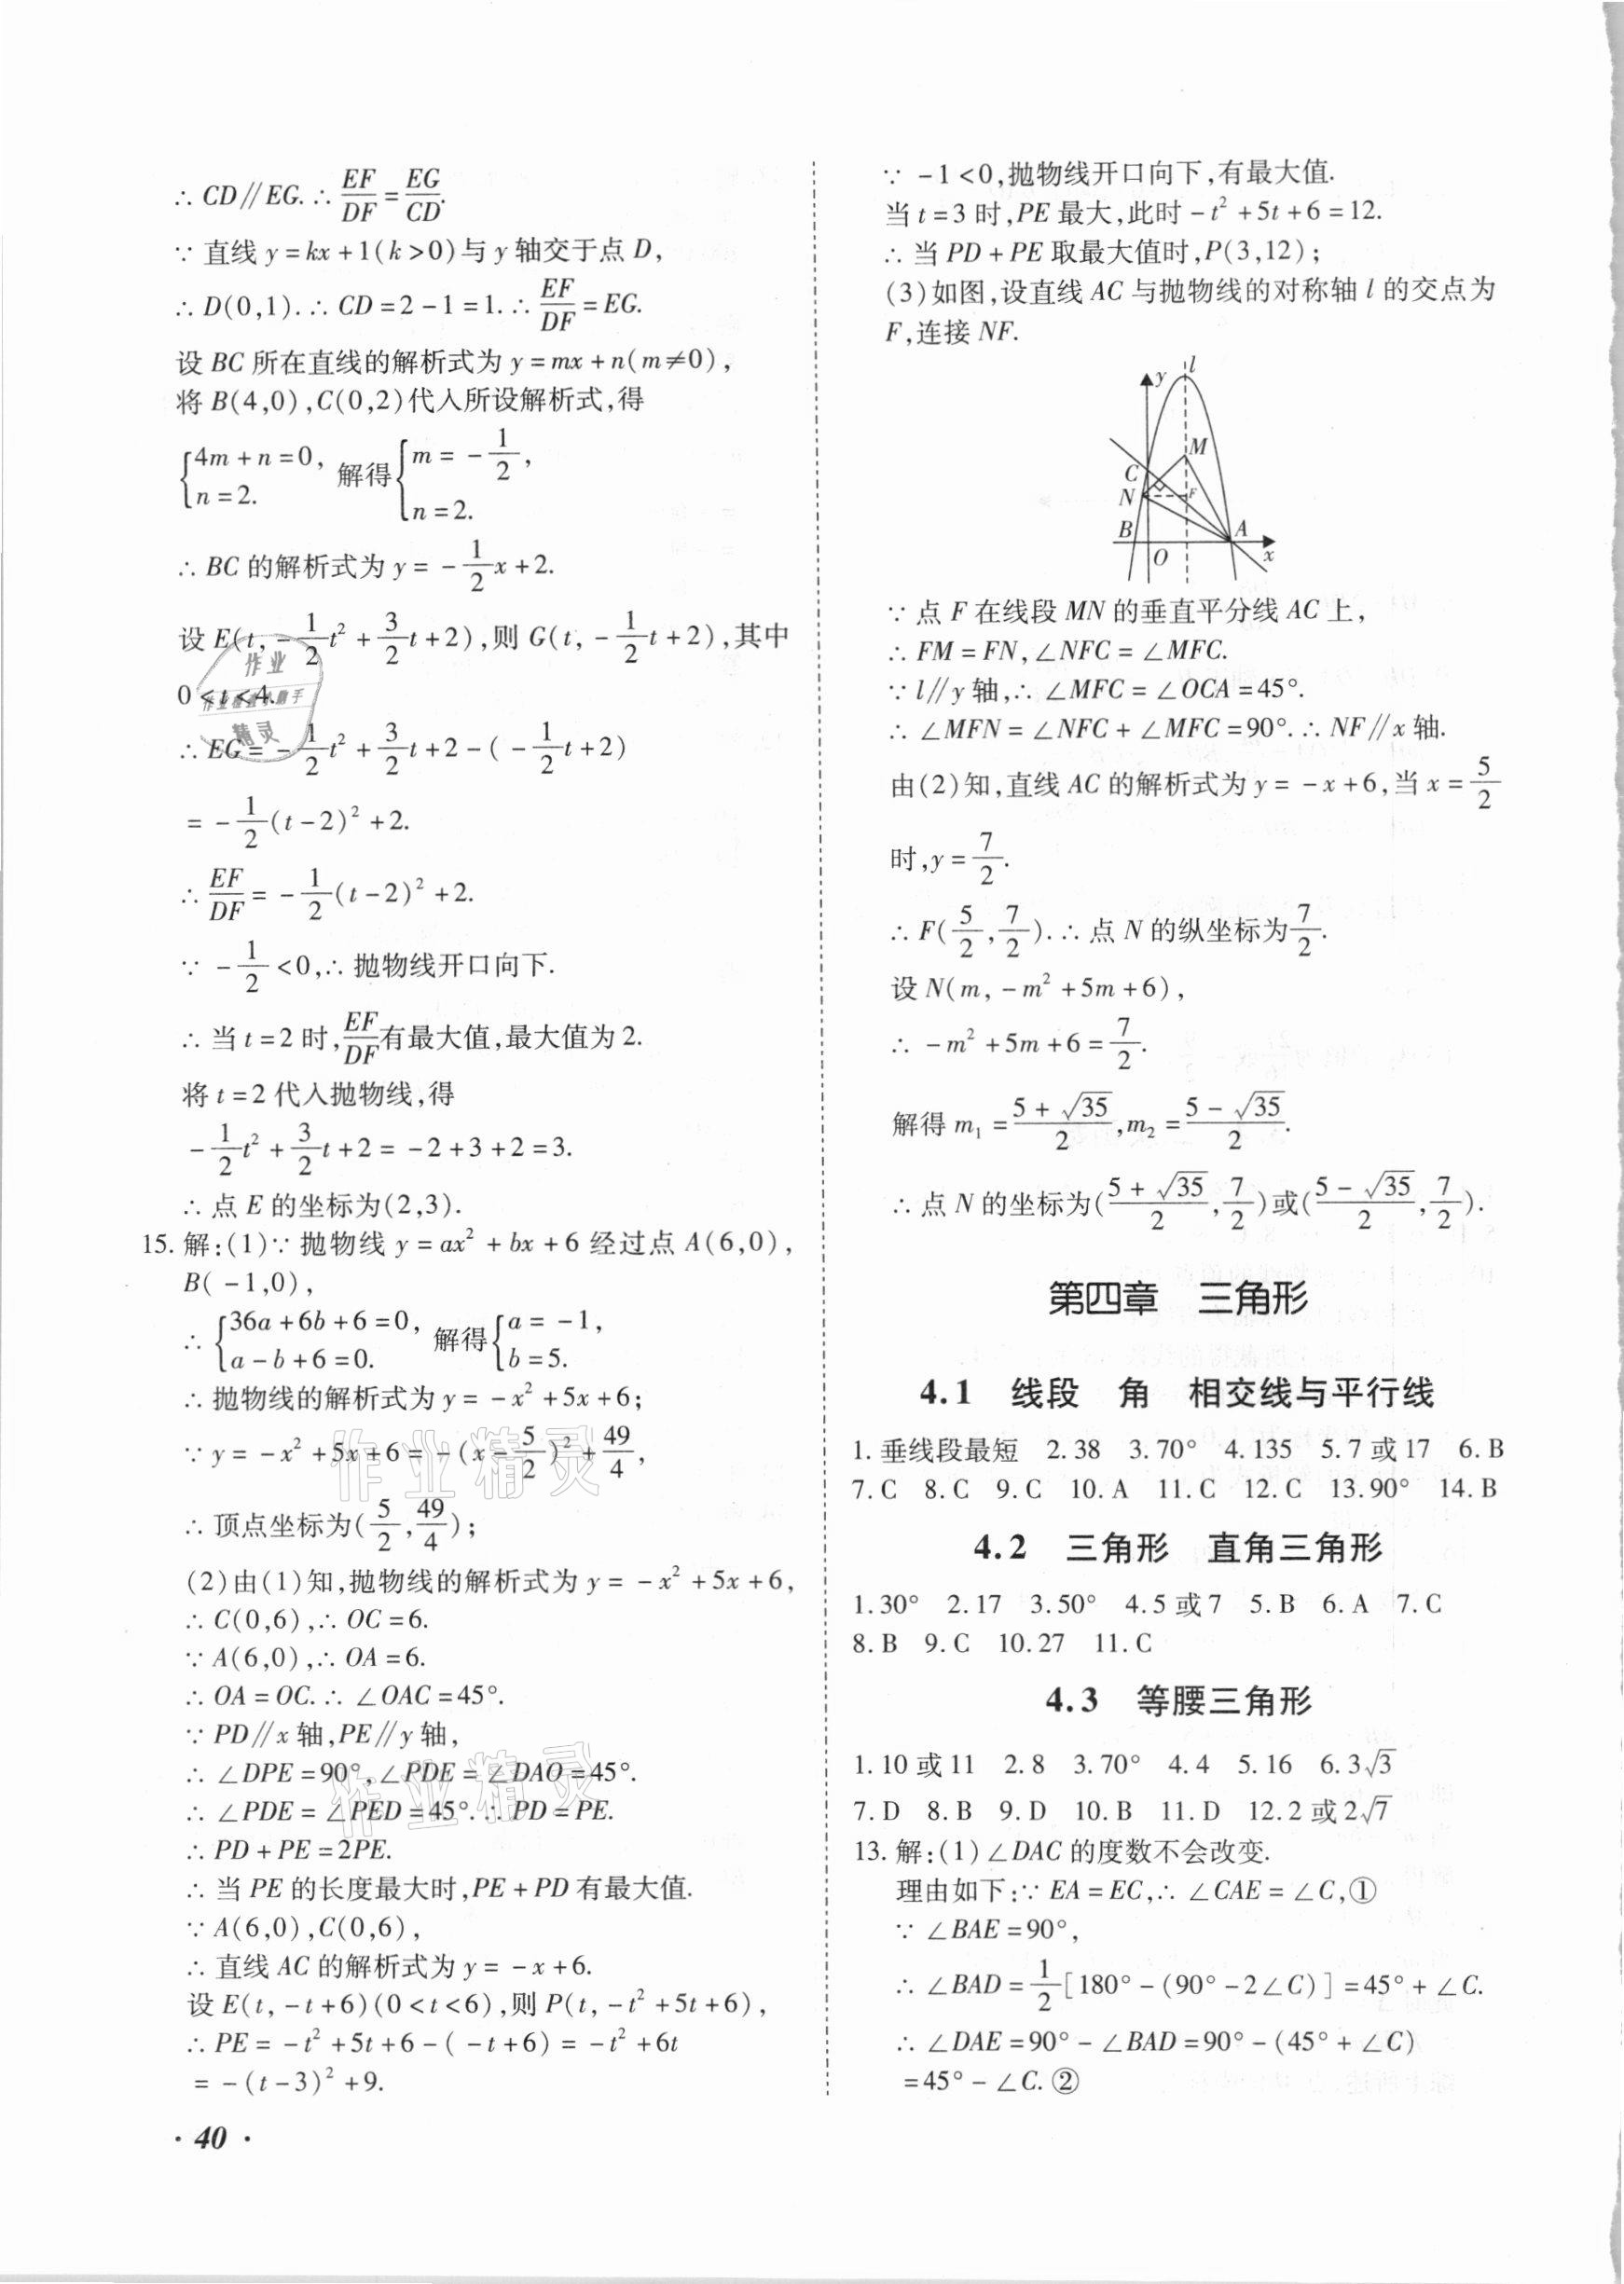 ∴ CD∥EG. ∴ EF/DF = EG/CD.
∵ 直线 y=kx+1(k>0)与 y 轴交于点 D,
∴ D(0,1). ∴ CD=2-1=1. ∴ EF/DF=EG.
设 BC 所在直线的解析式为 y=mx+n(m≠0),
将 B(4,0),C(0,2)代入所设解析式,得
{4m+n=0, n=2. 解得{m=-1/2, n=2.
∴ BC 的解析式为 y=-1/2x+2.
设 E(t,-1/2t²+3/2t+2),则 G(t,-1/2t+2),其中
0<t<4.
∴ EG=-1/2t²+3/2t+2-(-1/2t+2)
=-1/2(t-2)²+2.
∴ EF/DF=-1/2(t-2)²+2.
∵ -1/2<0,∴ 抛物线开口向下.
∴ 当 t=2 时,EF/DF有最大值,最大值为 2.
将 t=2 代入抛物线,得
-1/2t²+3/2t+2=-2+3+2=3.
∴ 点 E 的坐标为(2,3).
15. 解:(1)∵ 抛物线 y=ax²+bx+6 经过点 A(6,0),
B(-1,0),
∴ {36a+6b+6=0, a-b+6=0. 解得{a=-1, b=5.
∴ 抛物线的解析式为 y=-x²+5x+6;
∵ y=-x²+5x+6=-(x-5/2)²+49/4,
∴ 顶点坐标为(5/2,49/4);
(2)由(1)知,抛物线的解析式为 y=-x²+5x+6,
∴ C(0,6),∴ OC=6.
∵ A(6,0),∴ OA=6.
∴ OA=OC. ∴ ∠OAC=45°.
∵ PD∥x 轴,PE∥y 轴,
∴ ∠DPE=90°,∠PDE=∠DAO=45°.
∴ ∠PDE=∠PED=45°. ∴ PD=PE.
∴ PD+PE=2PE.
∴ 当 PE 的长度最大时,PE+PD 有最大值.
∵ A(6,0),C(0,6),
∴ 直线 AC 的解析式为 y=-x+6.
设 E(t,-t+6)(0<t<6),则 P(t,-t²+5t+6),
∴ PE=-t²+5t+6-(-t+6)=-t²+6t
=-(t-3)²+9.
· 40 ·
∵ -1<0,抛物线开口向下,有最大值.
当 t=3 时,PE 最大,此时-t²+5t+6=12.
∴ 当 PD+PE 取最大值时,P(3,12);
(3)如图,设直线 AC 与抛物线的对称轴 l 的交点为
F,连接 NF.
y
l
M
C
N
F
B
A
O
x
∵ 点 F 在线段 MN 的垂直平分线 AC 上,
∴ FM=FN,∠NFC=∠MFC.
∵ l∥y 轴,∴ ∠MFC=∠OCA=45°.
∴ ∠MFN=∠NFC+∠MFC=90°. ∴ NF∥x 轴.
由(2)知,直线 AC 的解析式为 y=-x+6,当 x=5/2
时,y=7/2.
∴ F(5/2,7/2). ∴ 点 N 的纵坐标为7/2.
设 N(m,-m²+5m+6),
∴ -m²+5m+6=7/2.
解得 m₁=(5+√35)/2,m₂=(5-√35)/2.
∴ 点 N 的坐标为((5+√35)/2,7/2)或((5-√35)/2,7/2).
第四章 三角形
4.1 线段 角 相交线与平行线
1. 垂线段最短 2. 38 3. 70° 4. 135 5. 7 或 17 6. B
7. C 8. C 9. C 10. A 11. C 12. C 13. 90° 14. B
4.2 三角形 直角三角形
1. 30° 2. 17 3. 50° 4. 5 或 7 5. B 6. A 7. C
8. B 9. C 10. 27 11. C
4.3 等腰三角形
1. 10 或 11 2. 8 3. 70° 4. 4 5. 16 6. 3√3
7. D 8. B 9. D 10. B 11. D 12. 2 或 2√7
13. 解:(1)∠DAC 的度数不会改变.
理由如下:∵ EA=EC,∴ ∠CAE=∠C,①
∵ ∠BAE=90°,
∴ ∠BAD=1/2[180°-(90°-2∠C)]=45°+∠C.
∴ ∠DAE=90°-∠BAD=90°-(45°+∠C)
=45°-∠C. ②
作业
作业检查小助手
精灵
作业精灵
作业精灵